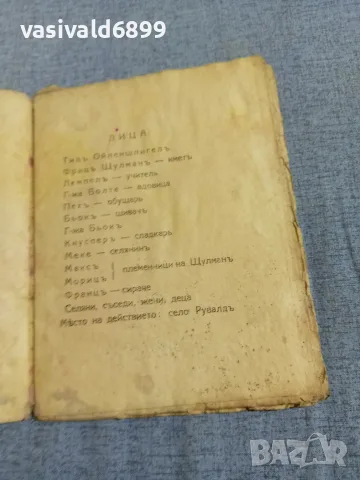 vasivald6899
ЛИЦА
Тилъ Ойленшпигелъ
Фрицъ Шулманъ — кметъ
Лемпелъ — учитель
Г-жа Болте — вдовица
Пекъ — обущарь
Бьокъ — шивачъ
Г-жа Бьокъ
Кнусперъ — сладкарь
Меке — селянинъ
Максъ
Морицъ } племенници на Шулменъ
Францъ — сираче
Селяни, съседи, жени, деца
Мѣсто на действието: село Рувалдъ
BAZAR